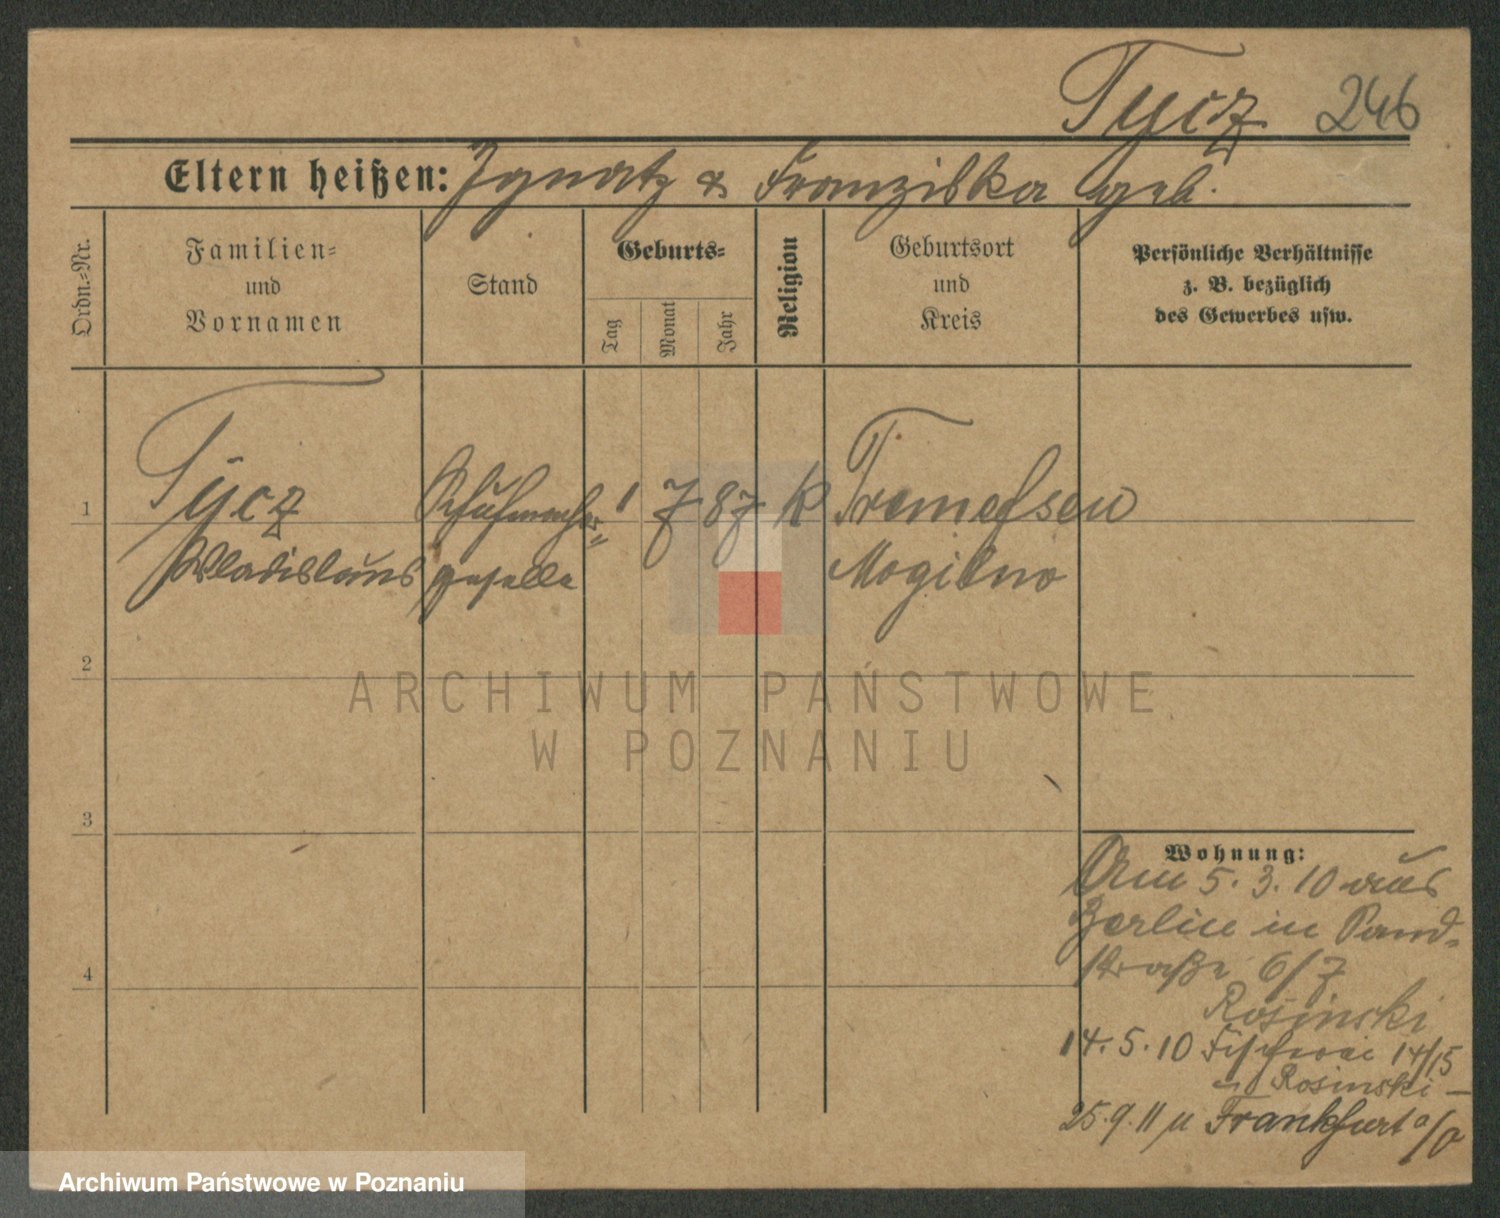 Tycz 246
Eltern heißen: Ignatz & Franziska geb.
Ordn.-Nr.
Familien-
und
Vornamen
Stand
Geburts-
Tag
Monat
Jahr
Religion
Geburtsort
und
Kreis
Persönliche Verhältnisse
z. B. bezüglich
des Gewerbes usw.
1 Tycz Schuhmacher- 1 7 87 K Tremessen
Wladislaus geselle Mogilno
2
3
4
Wohnung:
Am 5. 3. 10 aus
Berlin in Sand-
straße 6/7
Rosinski
14. 5. 10 Fischerei 14/15
Rosinski
25. 9. 11 n Frankfurt a/O
ARCHIWUM PAŃSTWOWE
W POZNANIU
Archiwum Państwowe w Poznaniu